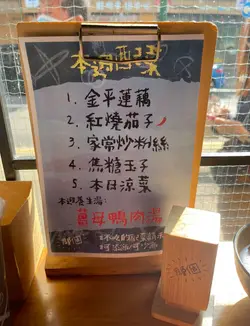 本週配菜
1. 金平蓮藕
2. 紅燒茄子
3. 家常炒粉絲
4. 焦糖玉子
5. 本日涼菜
本週養生湯:
薑母鴨肉湯